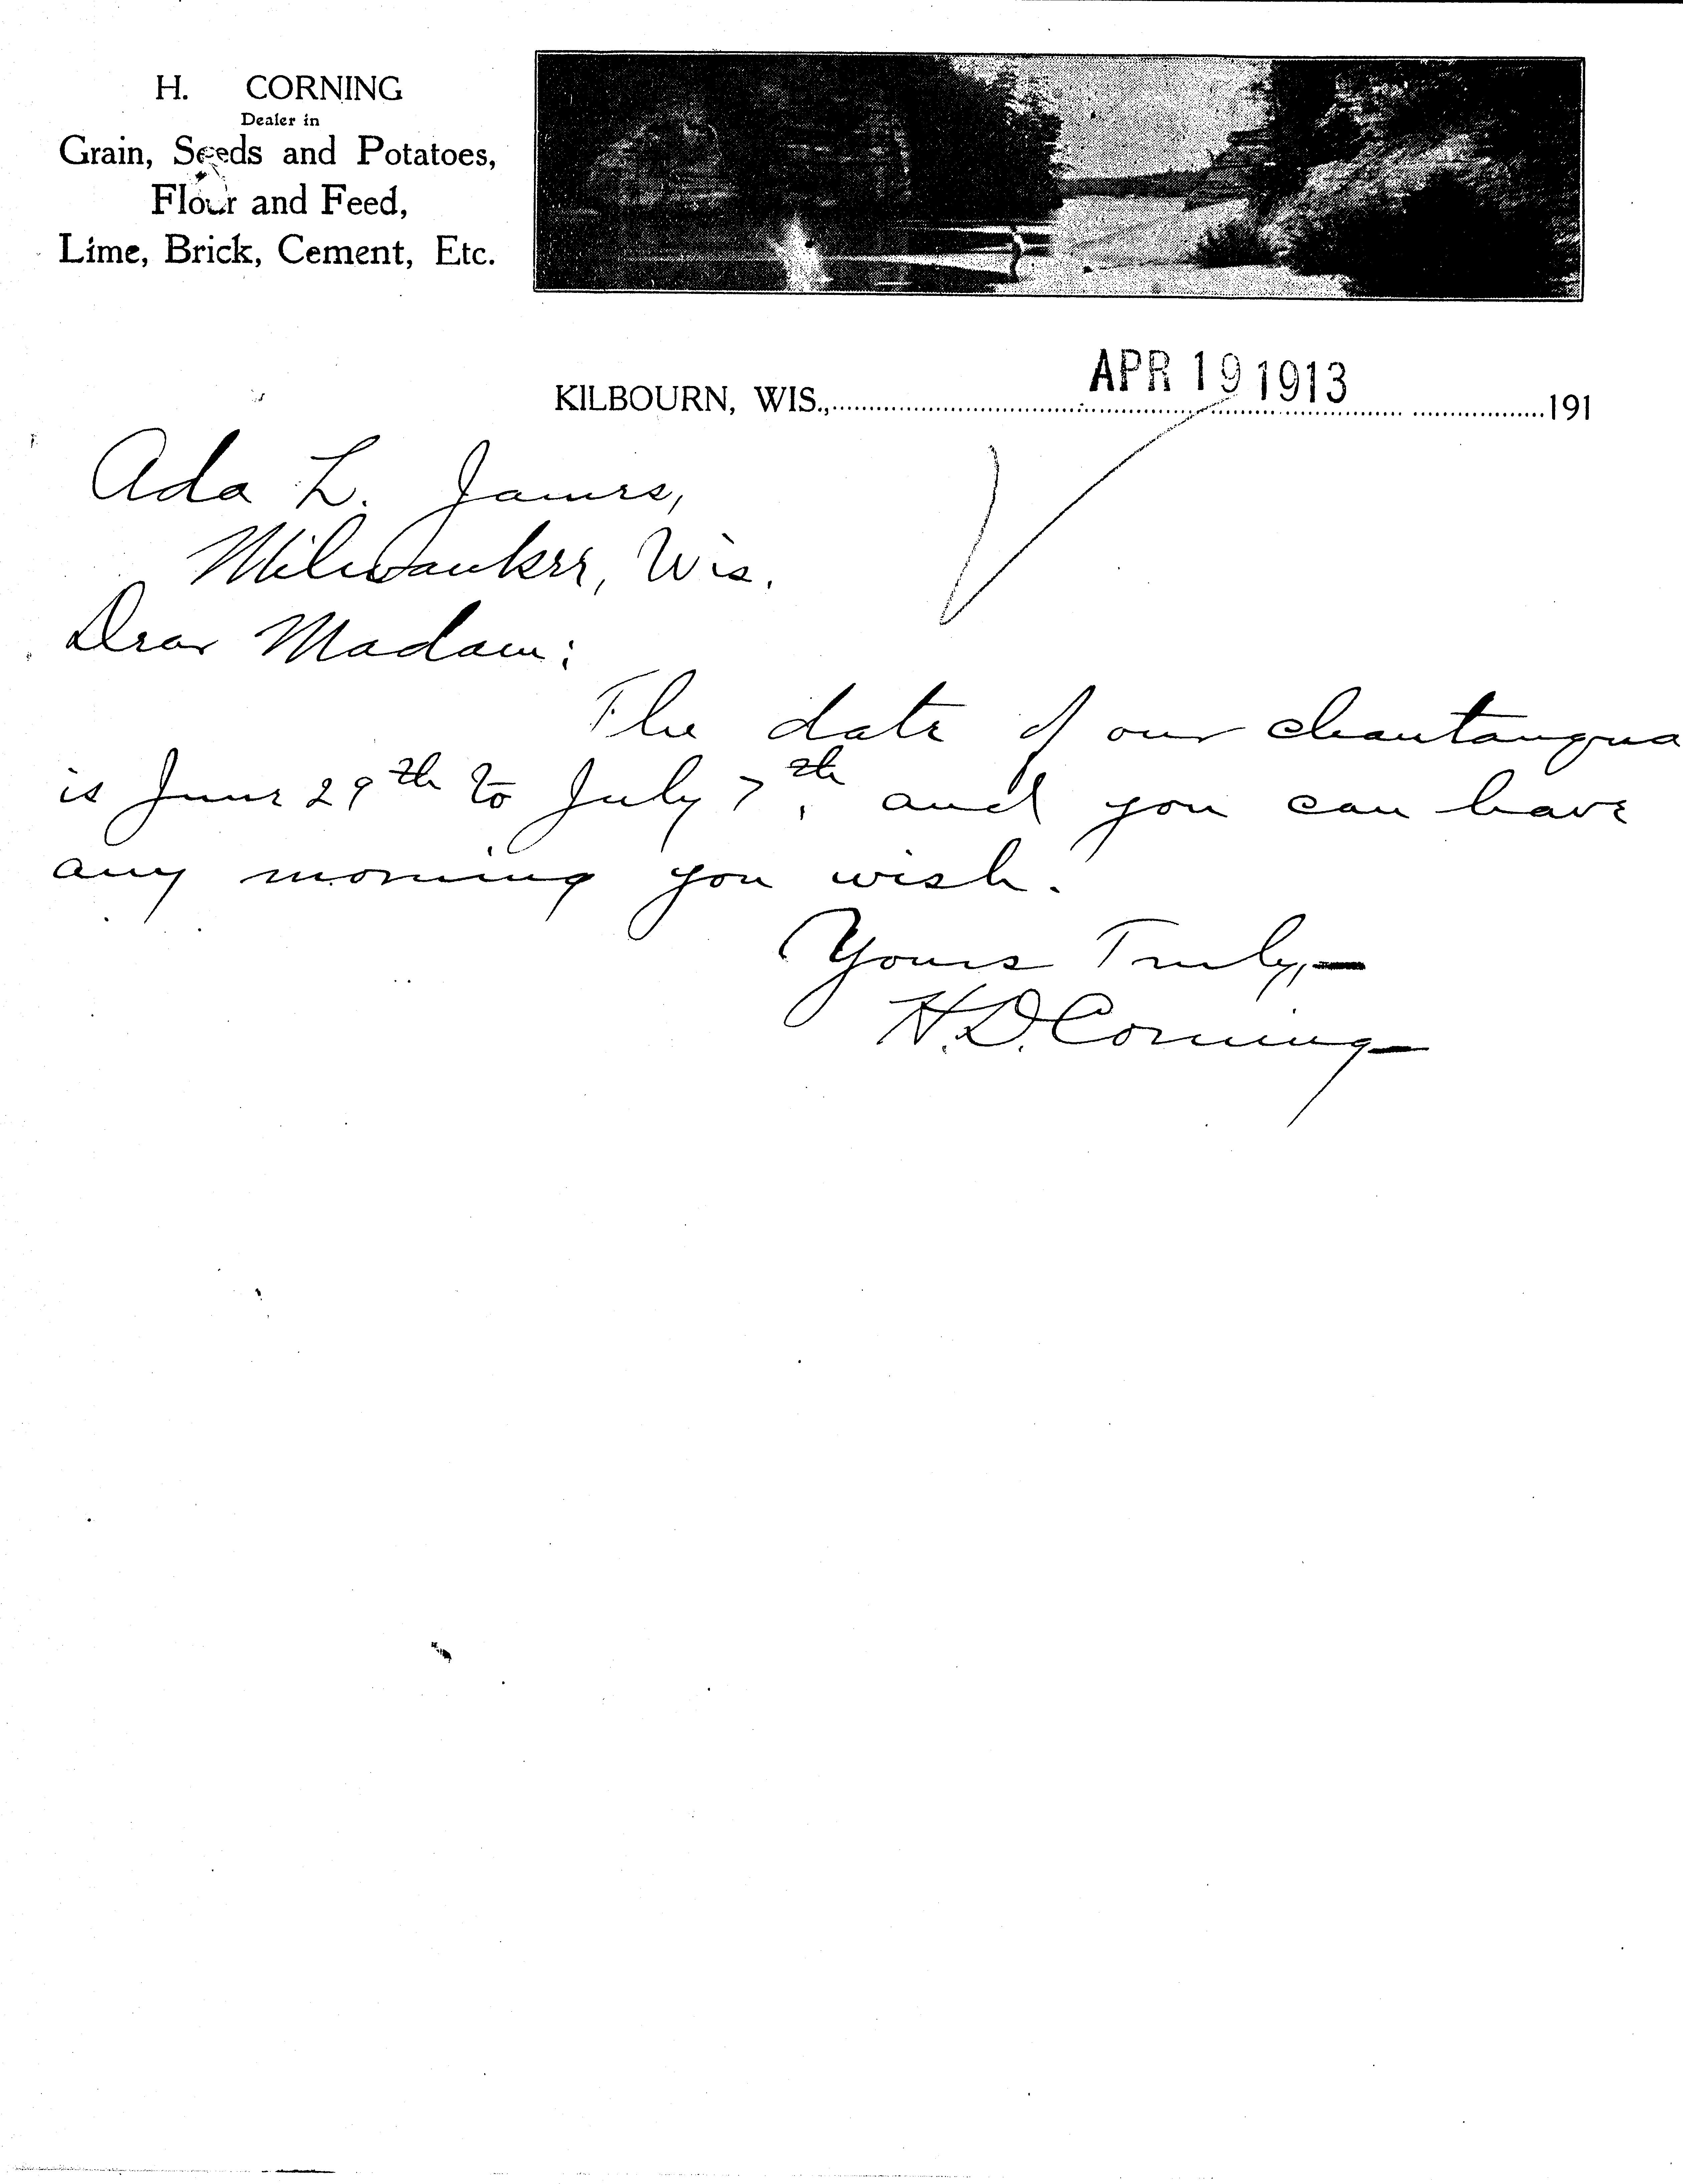 H. CORNING
Dealer in
Grain, Seeds and Potatoes,
Flour and Feed,
Lime, Brick, Cement, Etc.
KILBOURN, WIS., APR 19 1913 191
Ada L. James,
Milwaukee, Wis.
Dear Madam:
The date of our chautauqua
is June 29th to July 7th, and you can have
any morning you wish.
Yours Truly,—
H.D. Corning